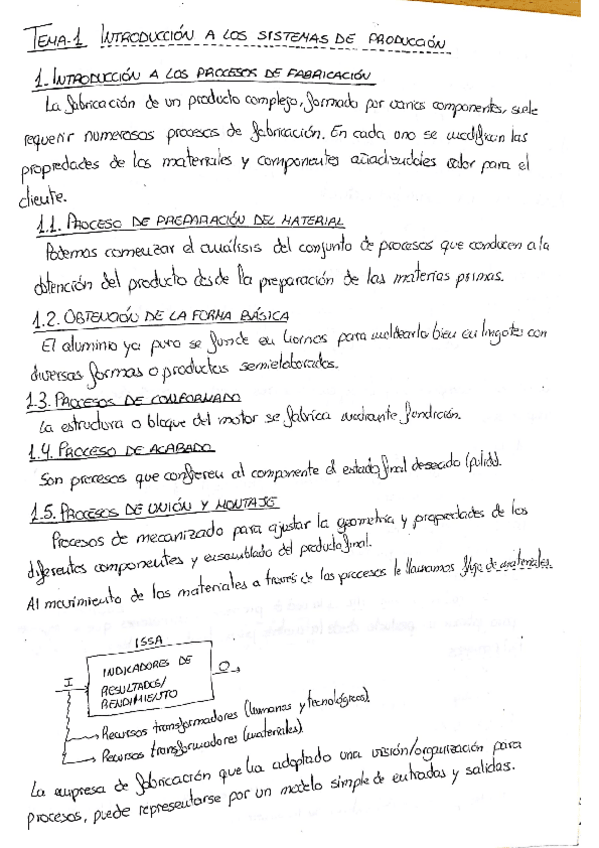 TEMA-1 INTRODUCCIÓN A LOS SISTEMAS DE PRODUCCIÓN
1.- INTRODUCCIÓN A LOS PROCESOS DE FABRICACIÓN
La fabricación de un producto complejo, formado por varios componentes, suele
requerir numerosos procesos de fabricación. En cada uno se modifican las
propiedades de los materiales y componentes añadiendoles valor para el
cliente.
1.1. PROCESO DE PREPARACIÓN DEL MATERIAL
Podemos comenzar el análisis del conjunto de procesos que conducen a la
obtención del producto desde la preparación de las materias primas.
1.2. OBTENCIÓN DE LA FORMA BÁSICA
El aluminio ya puro se funde en hornos para moldearlo bien en lingotes con
diversas formas o productos semielaborados.
1.3. PROCESOS DE CONFORMADO
La estructura o bloque del motor se fabrica mediante fundición.
1.4. PROCESO DE ACABADO
Son procesos que confieren al componente el estado final deseado (pulido).
1.5. PROCESOS DE UNIÓN Y MONTAJE
Procesos de mecanizado para ajustar la geometría y propiedades de los
diferentes componentes y ensamblado del producto final.
Al movimiento de los materiales a través de los procesos le llamamos flujo de materiales.
ISSA
I
INDICADORES DE
RESULTADOS/
RENDIMIENTO
O
Recursos transformadores (humanos y tecnológicos).
Recursos transformadores (materiales).
La empresa de fabricación que ha adoptado una visión/organización para
procesos, puede representarse por un modelo simple de entradas y salidas.